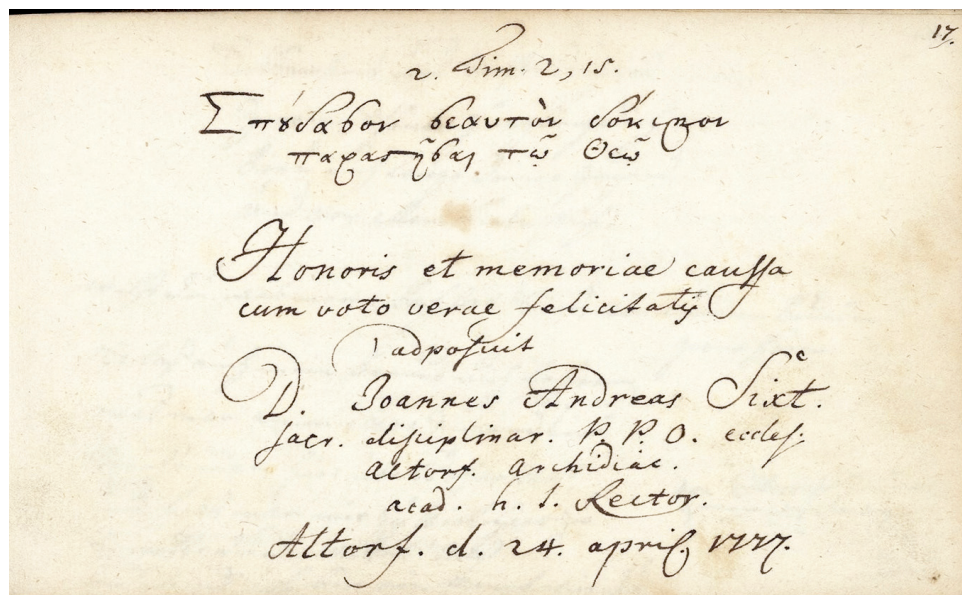 17.
2. Tim. 2, 15.
Σπȣδασον σεαυτὸν δόκιμον
παραϛῆσαι τῷ Θεῷ
Honoris et memoriae caussa
cum voto verae felicitatis
adposuit
D. Joannes Andreas Sixt.
sacr. disciplinar. P. P. O. eccles.
Altorf. Archidiac.
acad. h. t. Rector.
Altorf. d. 24. april. 1777.